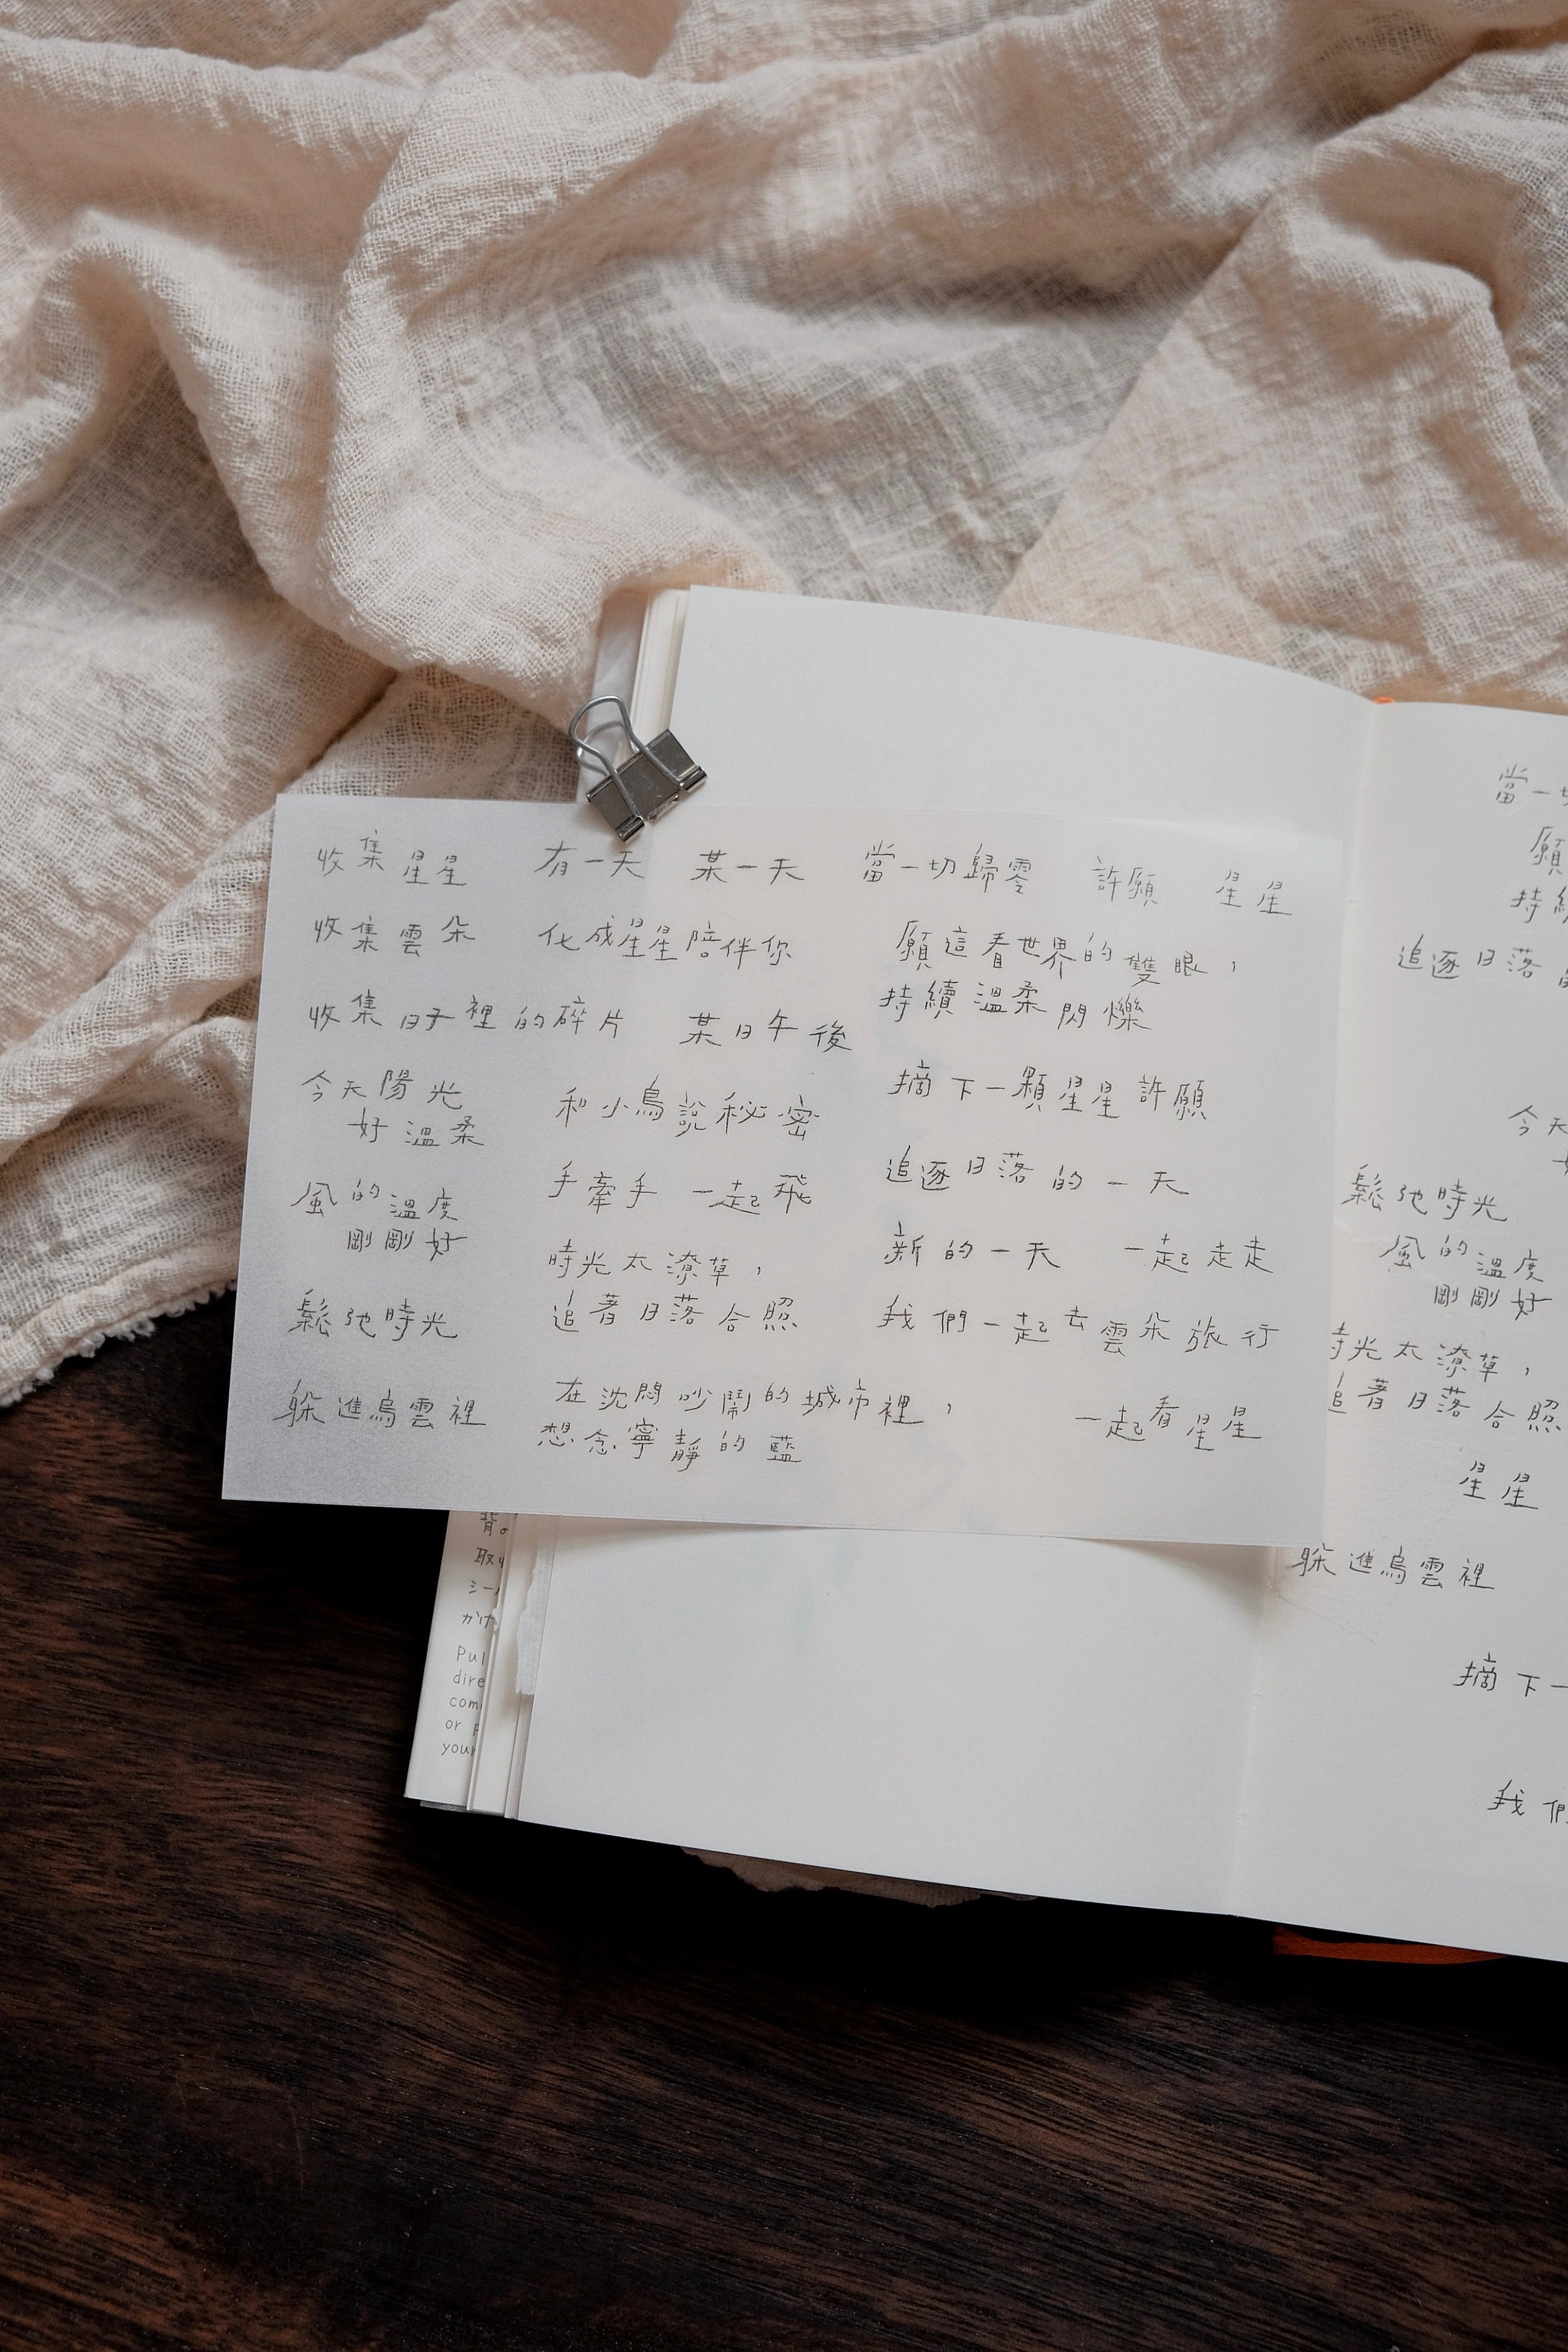 收集星星 有一天 某一天 當一切歸零 許願 星星
收集雲朵 化成星星陪伴你
願這看世界的雙眼，
持續溫柔閃爍
收集日子裡的碎片 某日午後
今天陽光
好溫柔
和小鳥說秘密
摘下一顆星星許願
風的溫度
剛剛好
手牽手 一起飛
追逐日落的一天
時光太潦草，
追著日落合照
新的一天 一起走走
鬆弛時光
我們一起去雲朵旅行
躲進烏雲裡
在沈悶吵鬧的城市裡，
想念寧靜的藍
一起看星星
當一切
願
持續
追逐日落
今天
鬆弛時光
風的溫度
剛剛好
時光太潦草，
追著日落合照
星星
躲進烏雲裡
摘下一
我們
背の
取り
シー
かけ
Pul
dire
com
or p
your